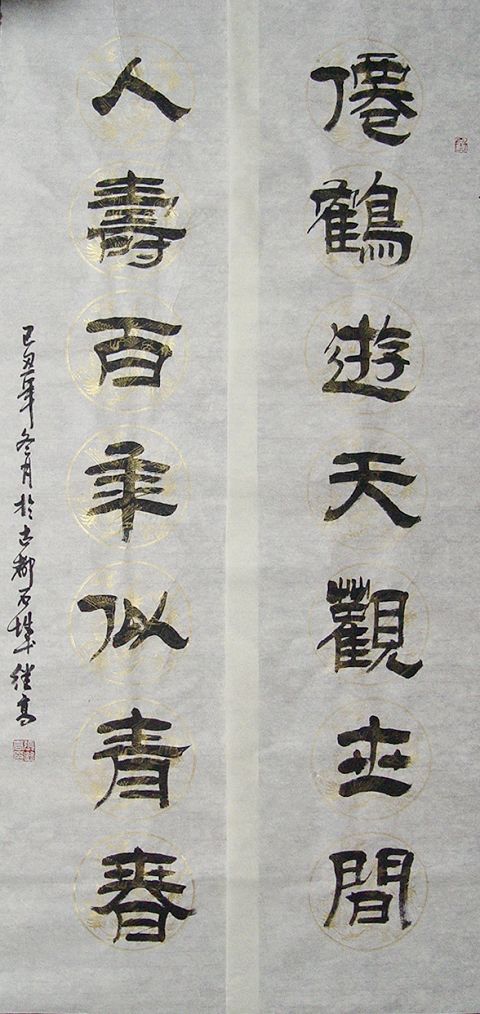 僊鶴遊天觀世間
人壽百年似青春
己丑年冬月於古都石城继高